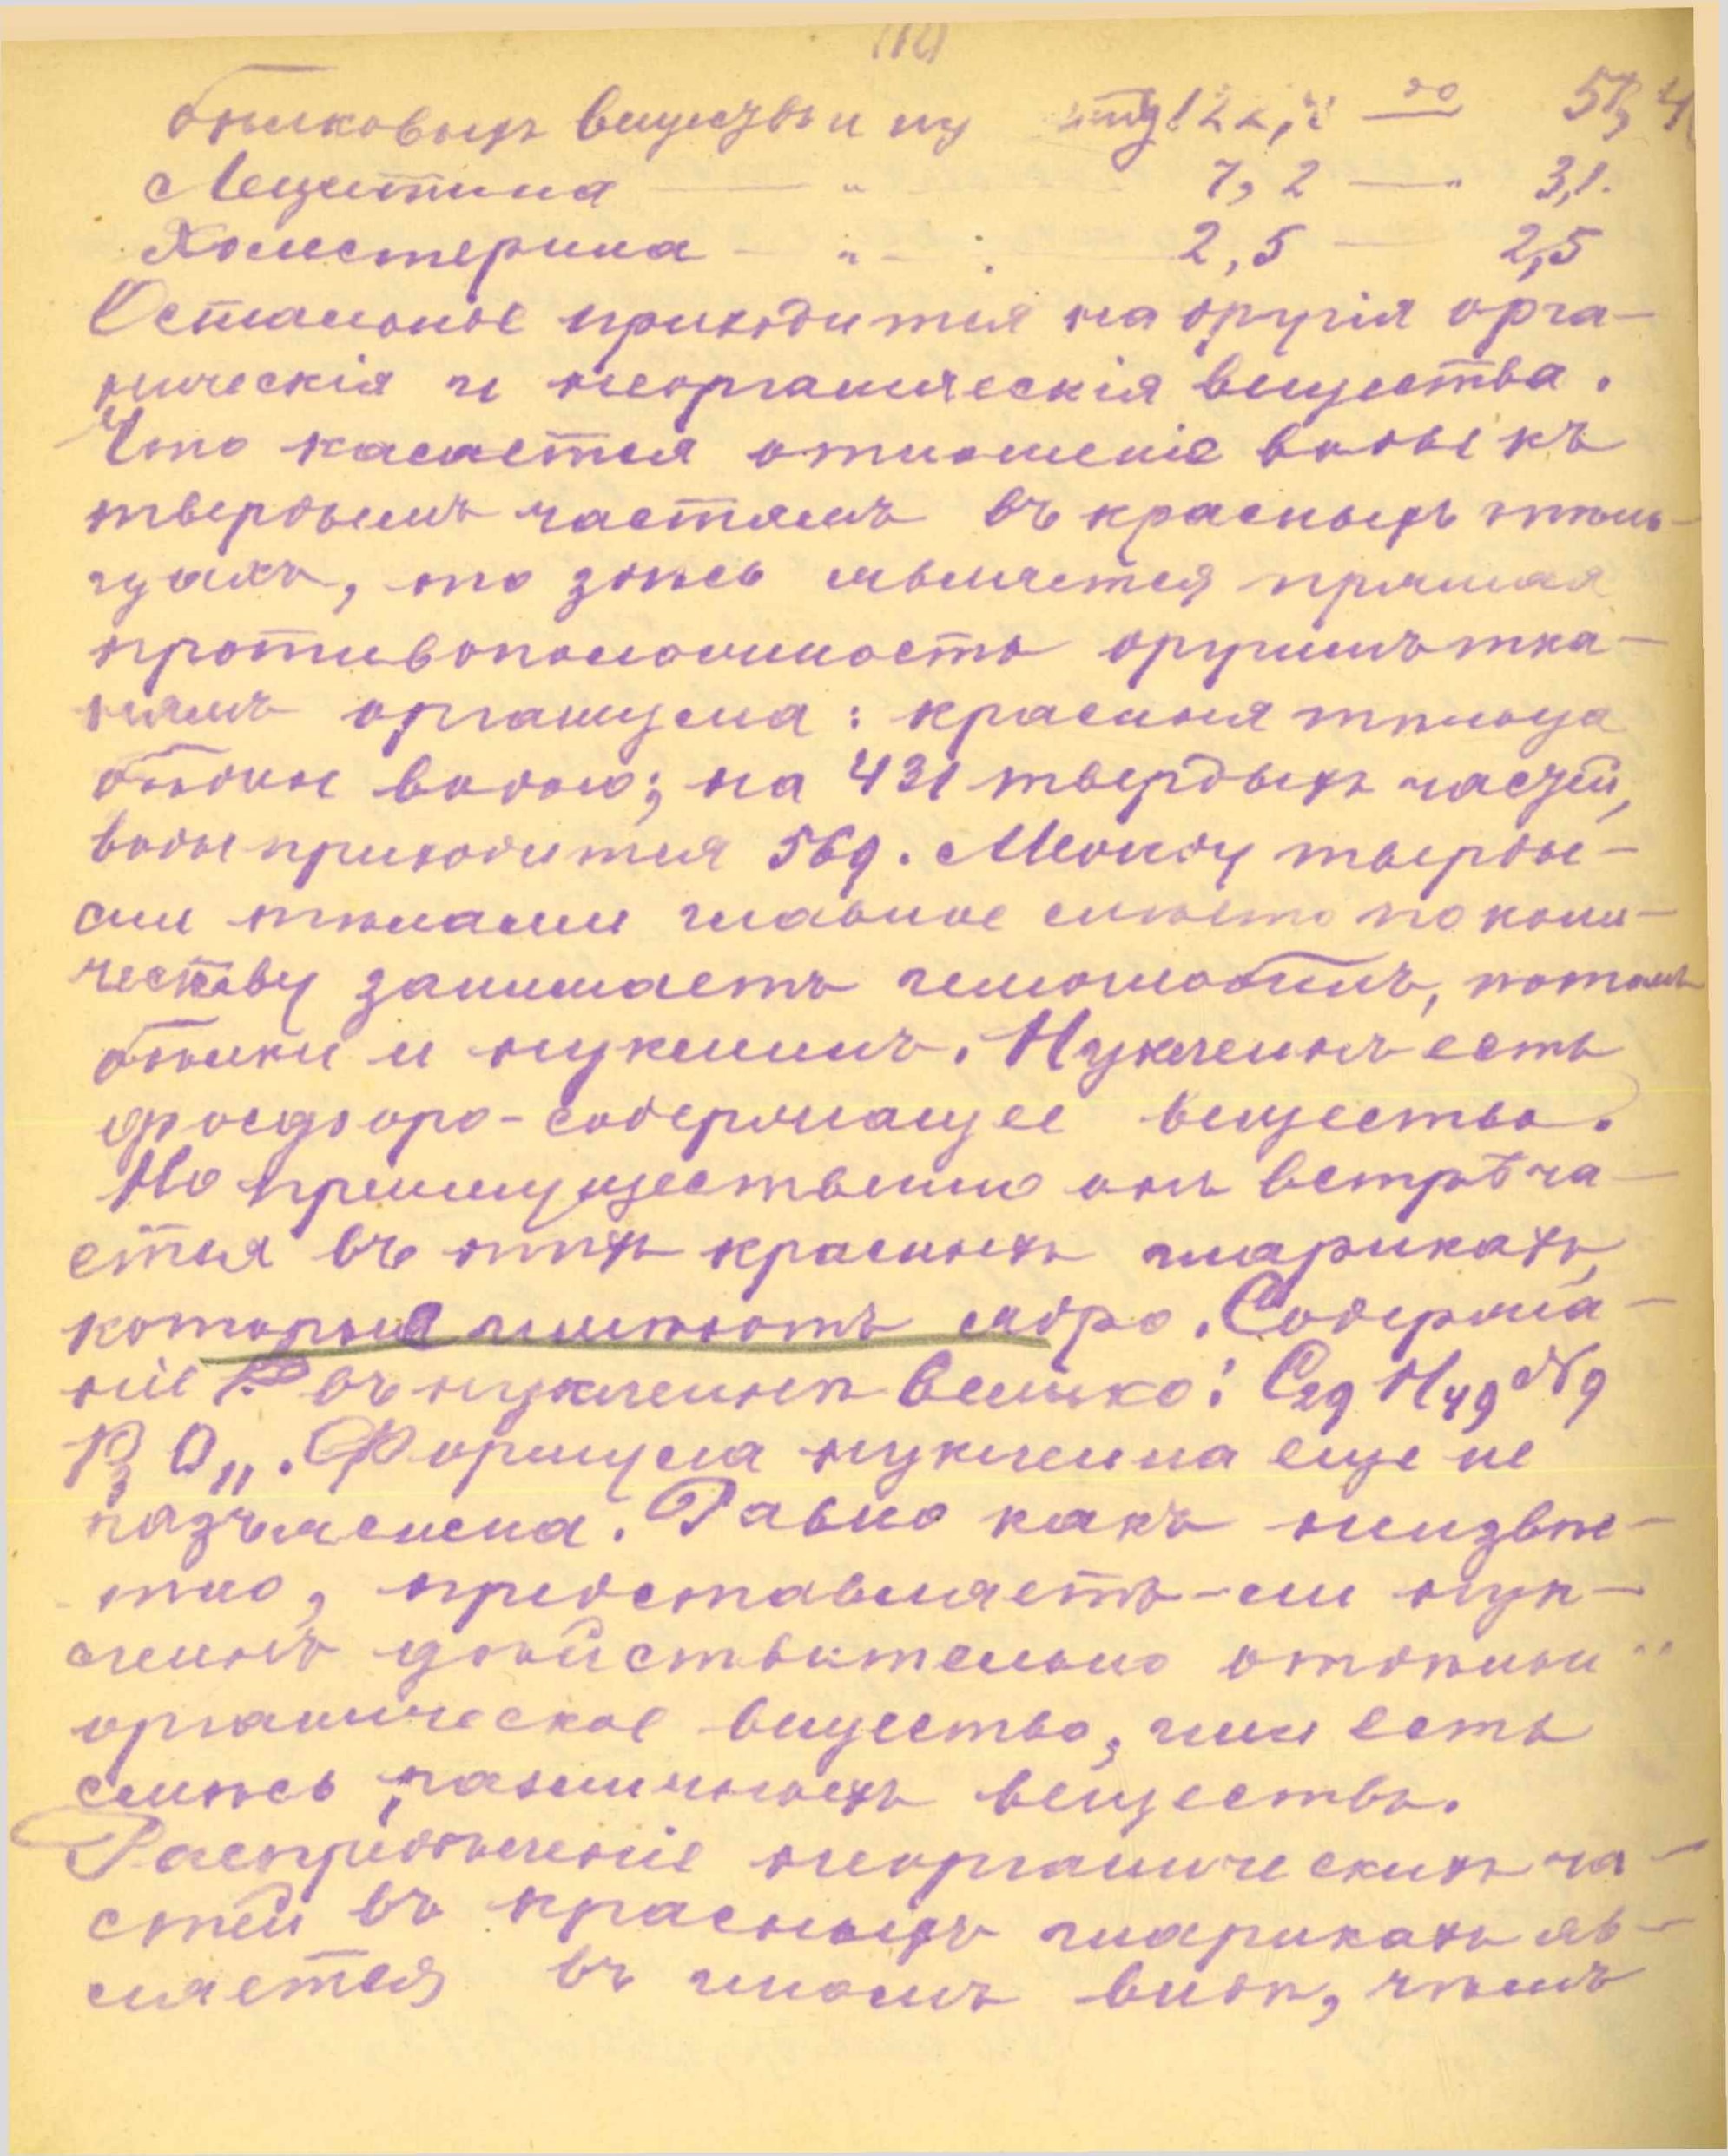 (12)
бѣлковыхъ веществъ и 122, до
Лецитина — " 7,2 — " 3,1.
Холестерина — " — 2,5 — 2,5
Остальное приходится на другія орга-
ническія и неорганическія вещества.
Что касается отношеніе воды къ
твердымъ частямъ въ красныхъ тѣль-
цахъ, то здѣсь является прямая
противоположность другимъ тка-
нямъ организма: красныя тѣльца
бѣдны водою; на 431 твердыхъ частей,
воды приходится 569. Между тверды-
ми тѣлами главное мѣсто по коли-
честву занимаетъ гемоглобинъ, потомъ
бѣлки и нуклеинъ. Нуклеинъ есть
фосфоро-содержащее вещество.
Но преимущественно онъ встрѣча-
ется въ тѣхъ красныхъ шарикахъ,
которые имѣютъ ядро. Содержа-
ніе P въ нуклеинѣ велико: C29 H49 N9
P3 O11. Формула нуклеина еще не
разъяснена. Равно какъ неизвѣ-
тно, представляетъ-ли нук-
леинъ дѣйствительно отдѣльн
органическое вещество, или есть
смѣсь различныхъ веществъ.
Распредѣленіе неорганическихъ ча-
стей въ красныхъ шарикахъ яв-
ляется въ иномъ видѣ, чѣмъ